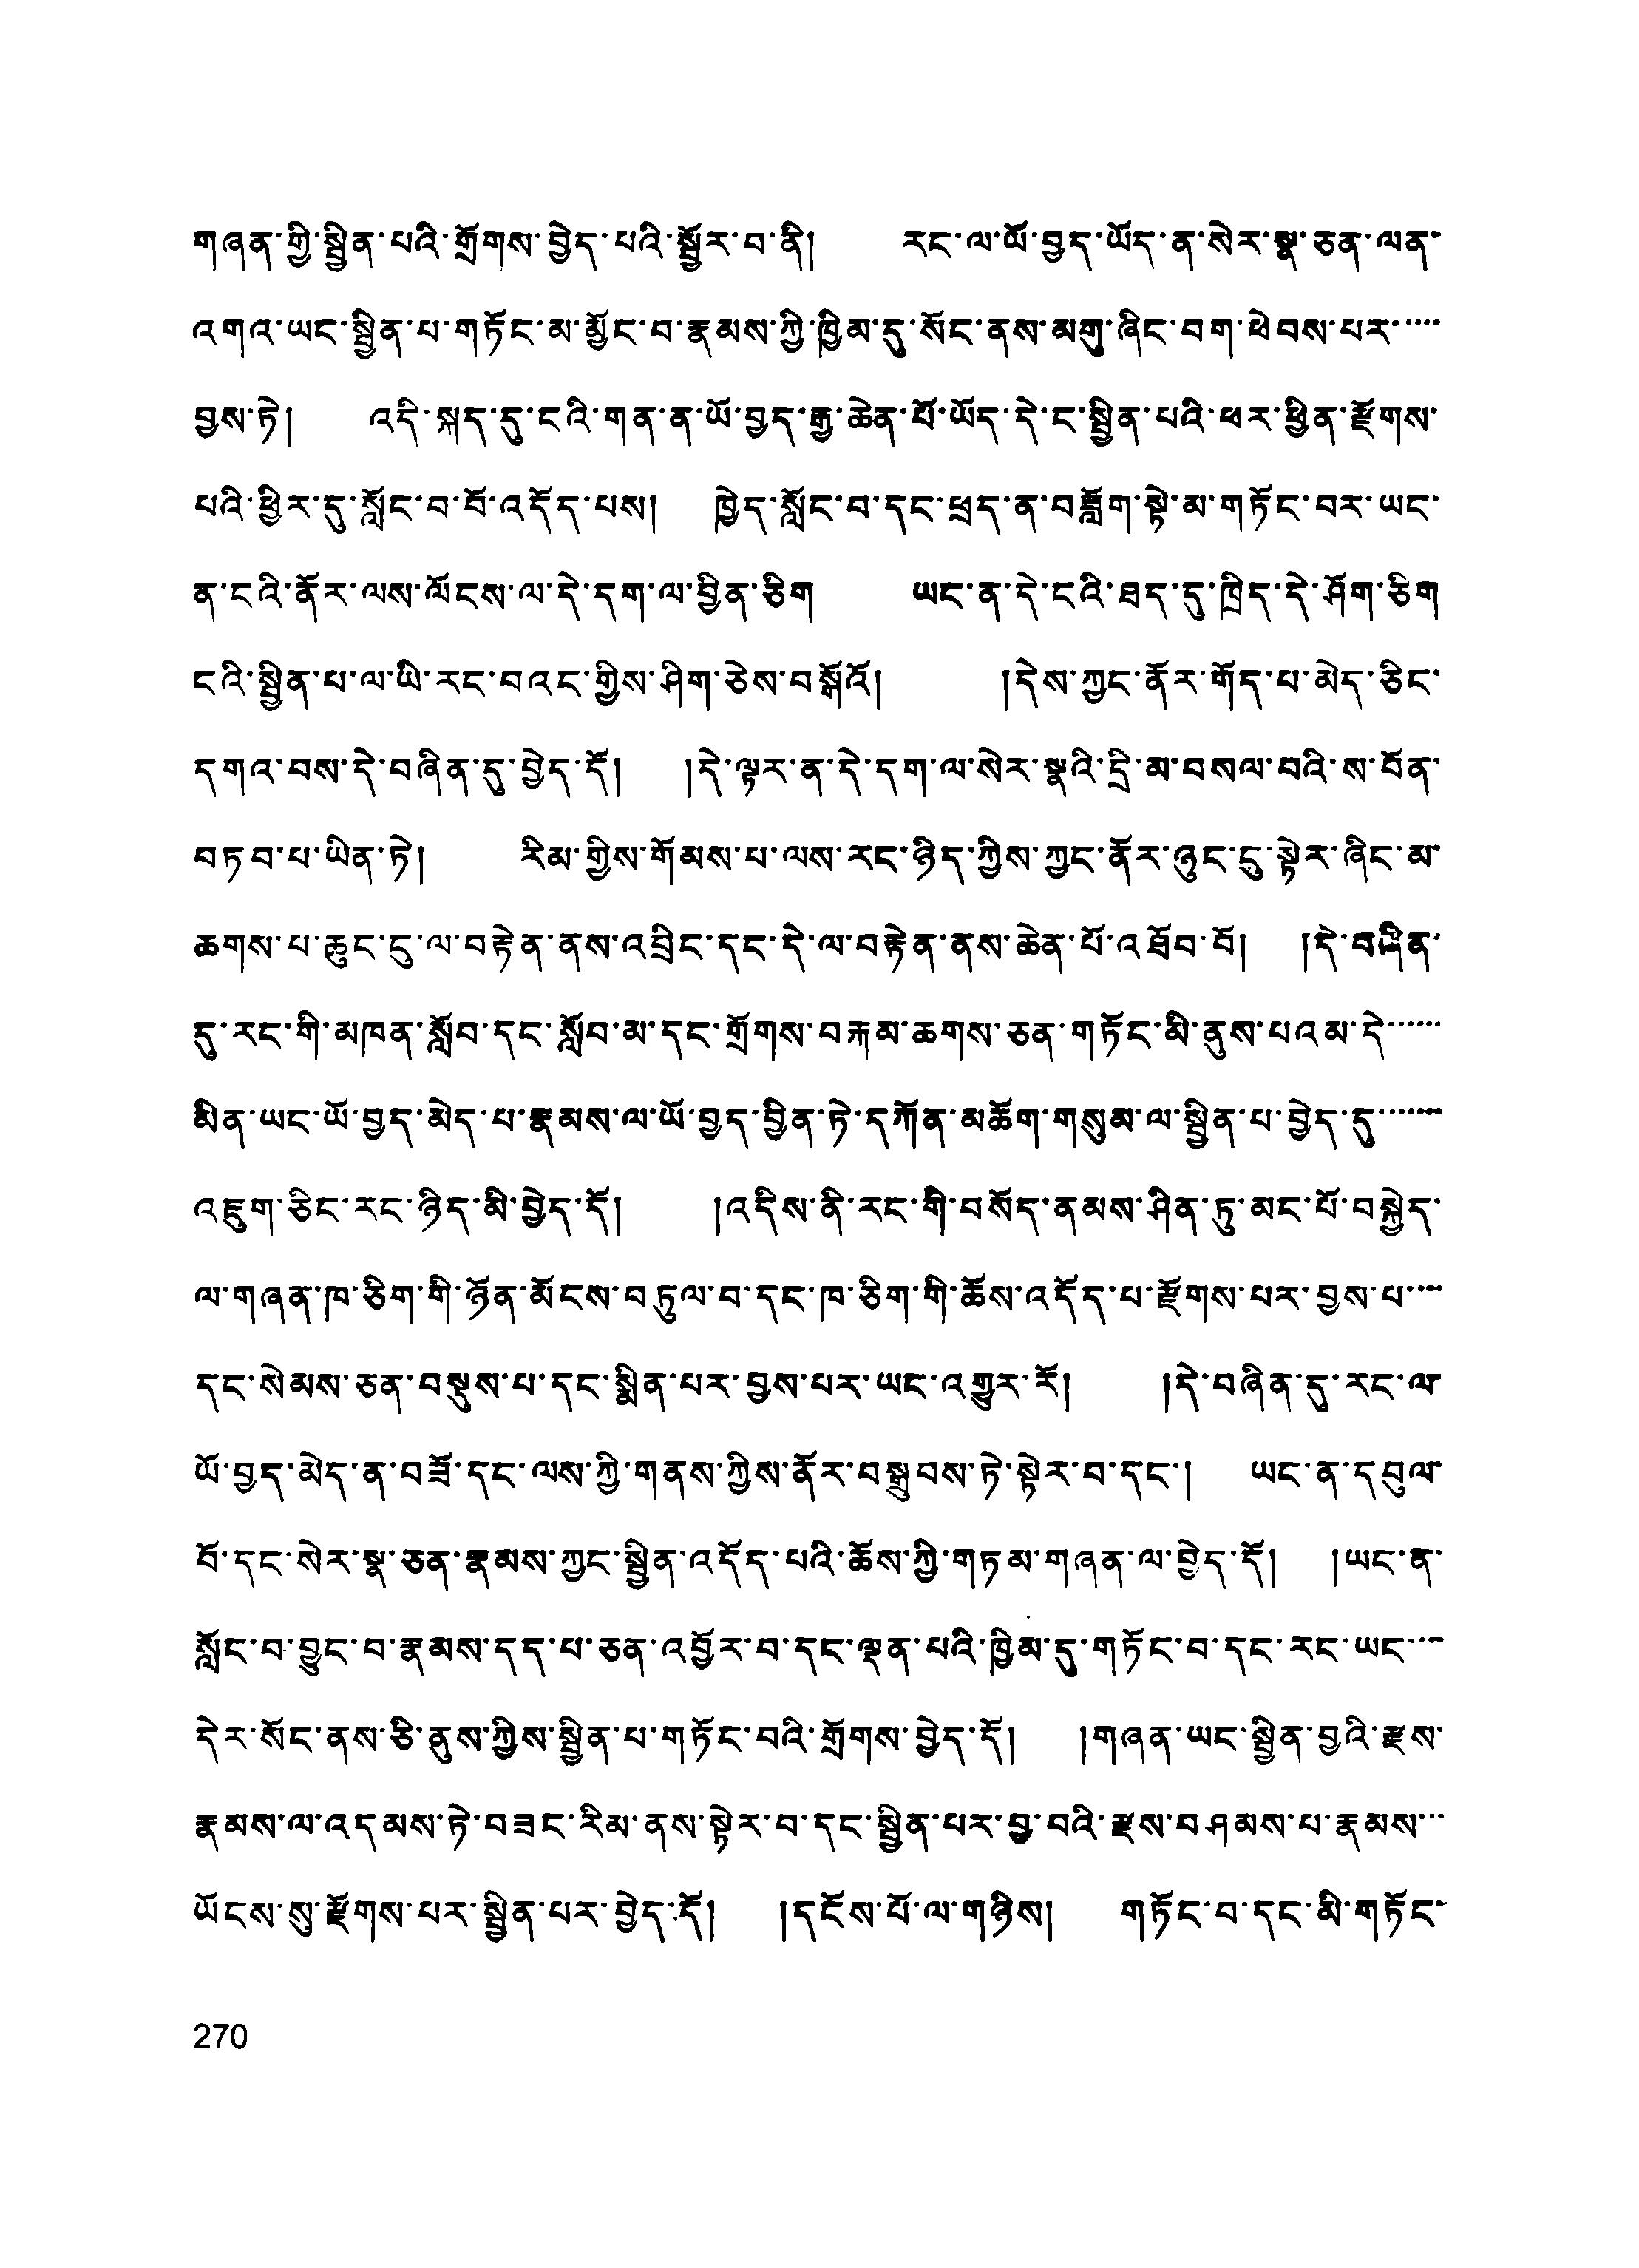 གཞན་གྱི་སྦྱིན་པའི་གྲོགས་བྱེད་པའི་སྦྱོར་བ་ནི།    རང་ལ་ཡོ་བྱད་ཡོད་ན་སེར་སྣ་ཅན་ལན་
འགའ་ཡང་སྦྱིན་པ་གཏོང་མ་མྱོང་བ་རྣམས་ཀྱི་ཁྱིམ་དུ་སོང་ནས་མགུ་ཞིང་བག་ཕེབས་པར་་་་་
བྱས་ཏེ།    འདི་སྐད་དུ་ངའི་གན་ན་ཡོ་བྱད་རྒྱ་ཆེན་པོ་ཡོད་དེ་ང་སྦྱིན་པའི་ཕར་ཕྱིན་རྫོགས་
པའི་ཕྱིར་དུ་སློང་བ་བོ་འདོད་པས།   ཁྱེད་སློང་བ་དང་ཕྲད་ན་བཟློག་སྟེ་མ་གཏོང་བར་ཡང་
ན་ངའི་ནོར་ལས་ལོངས་ལ་དེ་དག་ལ་བྱིན་ཅིག    ཡང་ན་དེ་ངའི་ཐད་དུ་ཁྲིད་དེ་ཤོག་ཅིག
ངའི་སྦྱིན་པ་ལ་ཡི་རང་བའང་གྱིས་ཤིག་ཅེས་བསྒོའོ།    །དེས་ཀྱང་ནོར་གོད་པ་མེད་ཅིང་
དགའ་བས་དེ་བཞིན་དུ་བྱེད་དོ།   །དེ་ལྟར་ན་དེ་དག་ལ་སེར་སྣའི་དྲི་མ་བསལ་བའི་ས་བོན་
བཏབ་པ་ཡིན་ཏེ།    རིམ་གྱིས་གོམས་པ་ལས་རང་ཉིད་ཀྱིས་ཀྱང་ནོར་ཉུང་ངུ་སྟེར་ཞིང་མ་
ཆགས་པ་ཆུང་ངུ་ལ་བརྟེན་ནས་འབྲིང་དང་དེ་ལ་བརྟེན་ནས་ཆེན་པོ་འཐོབ་བོ།   །དེ་བཞིན་
དུ་རང་གི་མཁན་སློབ་དང་སློབ་མ་དང་གྲོགས་བརྐམ་ཆགས་ཅན་གཏོང་མི་ནུས་པའམ་དེ་་་་་་
མིན་ཡང་ཡོ་བྱད་མེད་པ་རྣམས་ལ་ཡོ་བྱད་བྱིན་ཏེ་དཀོན་མཆོག་གསུམ་ལ་སྦྱིན་པ་བྱེད་དུ་་་་་་་
འཇུག་ཅིང་རང་ཉིད་མི་བྱེད་དོ།    །འདིས་ནི་རང་གི་བསོད་ནམས་ཤིན་ཏུ་མང་པོ་བསྐྱེད་
ལ་གཞན་ཁ་ཅིག་གི་ཉོན་མོངས་བཏུལ་བ་དང་ཁ་ཅིག་གི་ཆོས་འདོད་པ་རྫོགས་པར་བྱས་པ་་་་
དང་སེམས་ཅན་བསྡུས་པ་དང་སྨིན་པར་བྱས་པར་ཡང་འགྱུར་རོ།    །དེ་བཞིན་དུ་རང་ལ་
ཡོ་བྱད་མེད་ན་བཟོ་དང་ལས་ཀྱི་གནས་ཀྱིས་ནོར་བསྒྲུབས་ཏེ་སྟེར་བ་དང་།   ཡང་ན་དབུལ་
པོ་དང་སེར་སྣ་ཅན་རྣམས་ཀྱང་སྦྱིན་འདོད་པའི་ཆོས་ཀྱི་གཏམ་གཞན་ལ་བྱེད་དོ།   །ཡང་ན་
སློང་བ་བྱུང་བ་རྣམས་དད་པ་ཅན་འབྱོར་བ་དང་ལྡན་པའི་ཁྱིམ་དུ་གཏོང་བ་དང་རང་ཡང་་་་
དེར་སོང་ནས་ཅི་ནུས་ཀྱིས་སྦྱིན་པ་གཏོང་བའི་གྲོགས་བྱེད་དོ།   །གཞན་ཡང་སྦྱིན་བྱའི་རྫས་
རྣམས་ལ་འདམས་ཏེ་བཟང་རིམ་ནས་སྟེར་བ་དང་སྦྱིན་པར་བྱ་བའི་རྫས་བཤམས་པ་རྣམས་་་་
ཡོངས་སུ་རྫོགས་པར་སྦྱིན་པར་བྱེད་དོ།   །དངོས་པོ་ལ་གཉིས།   གཏོང་བ་དང་མི་གཏོང་
270